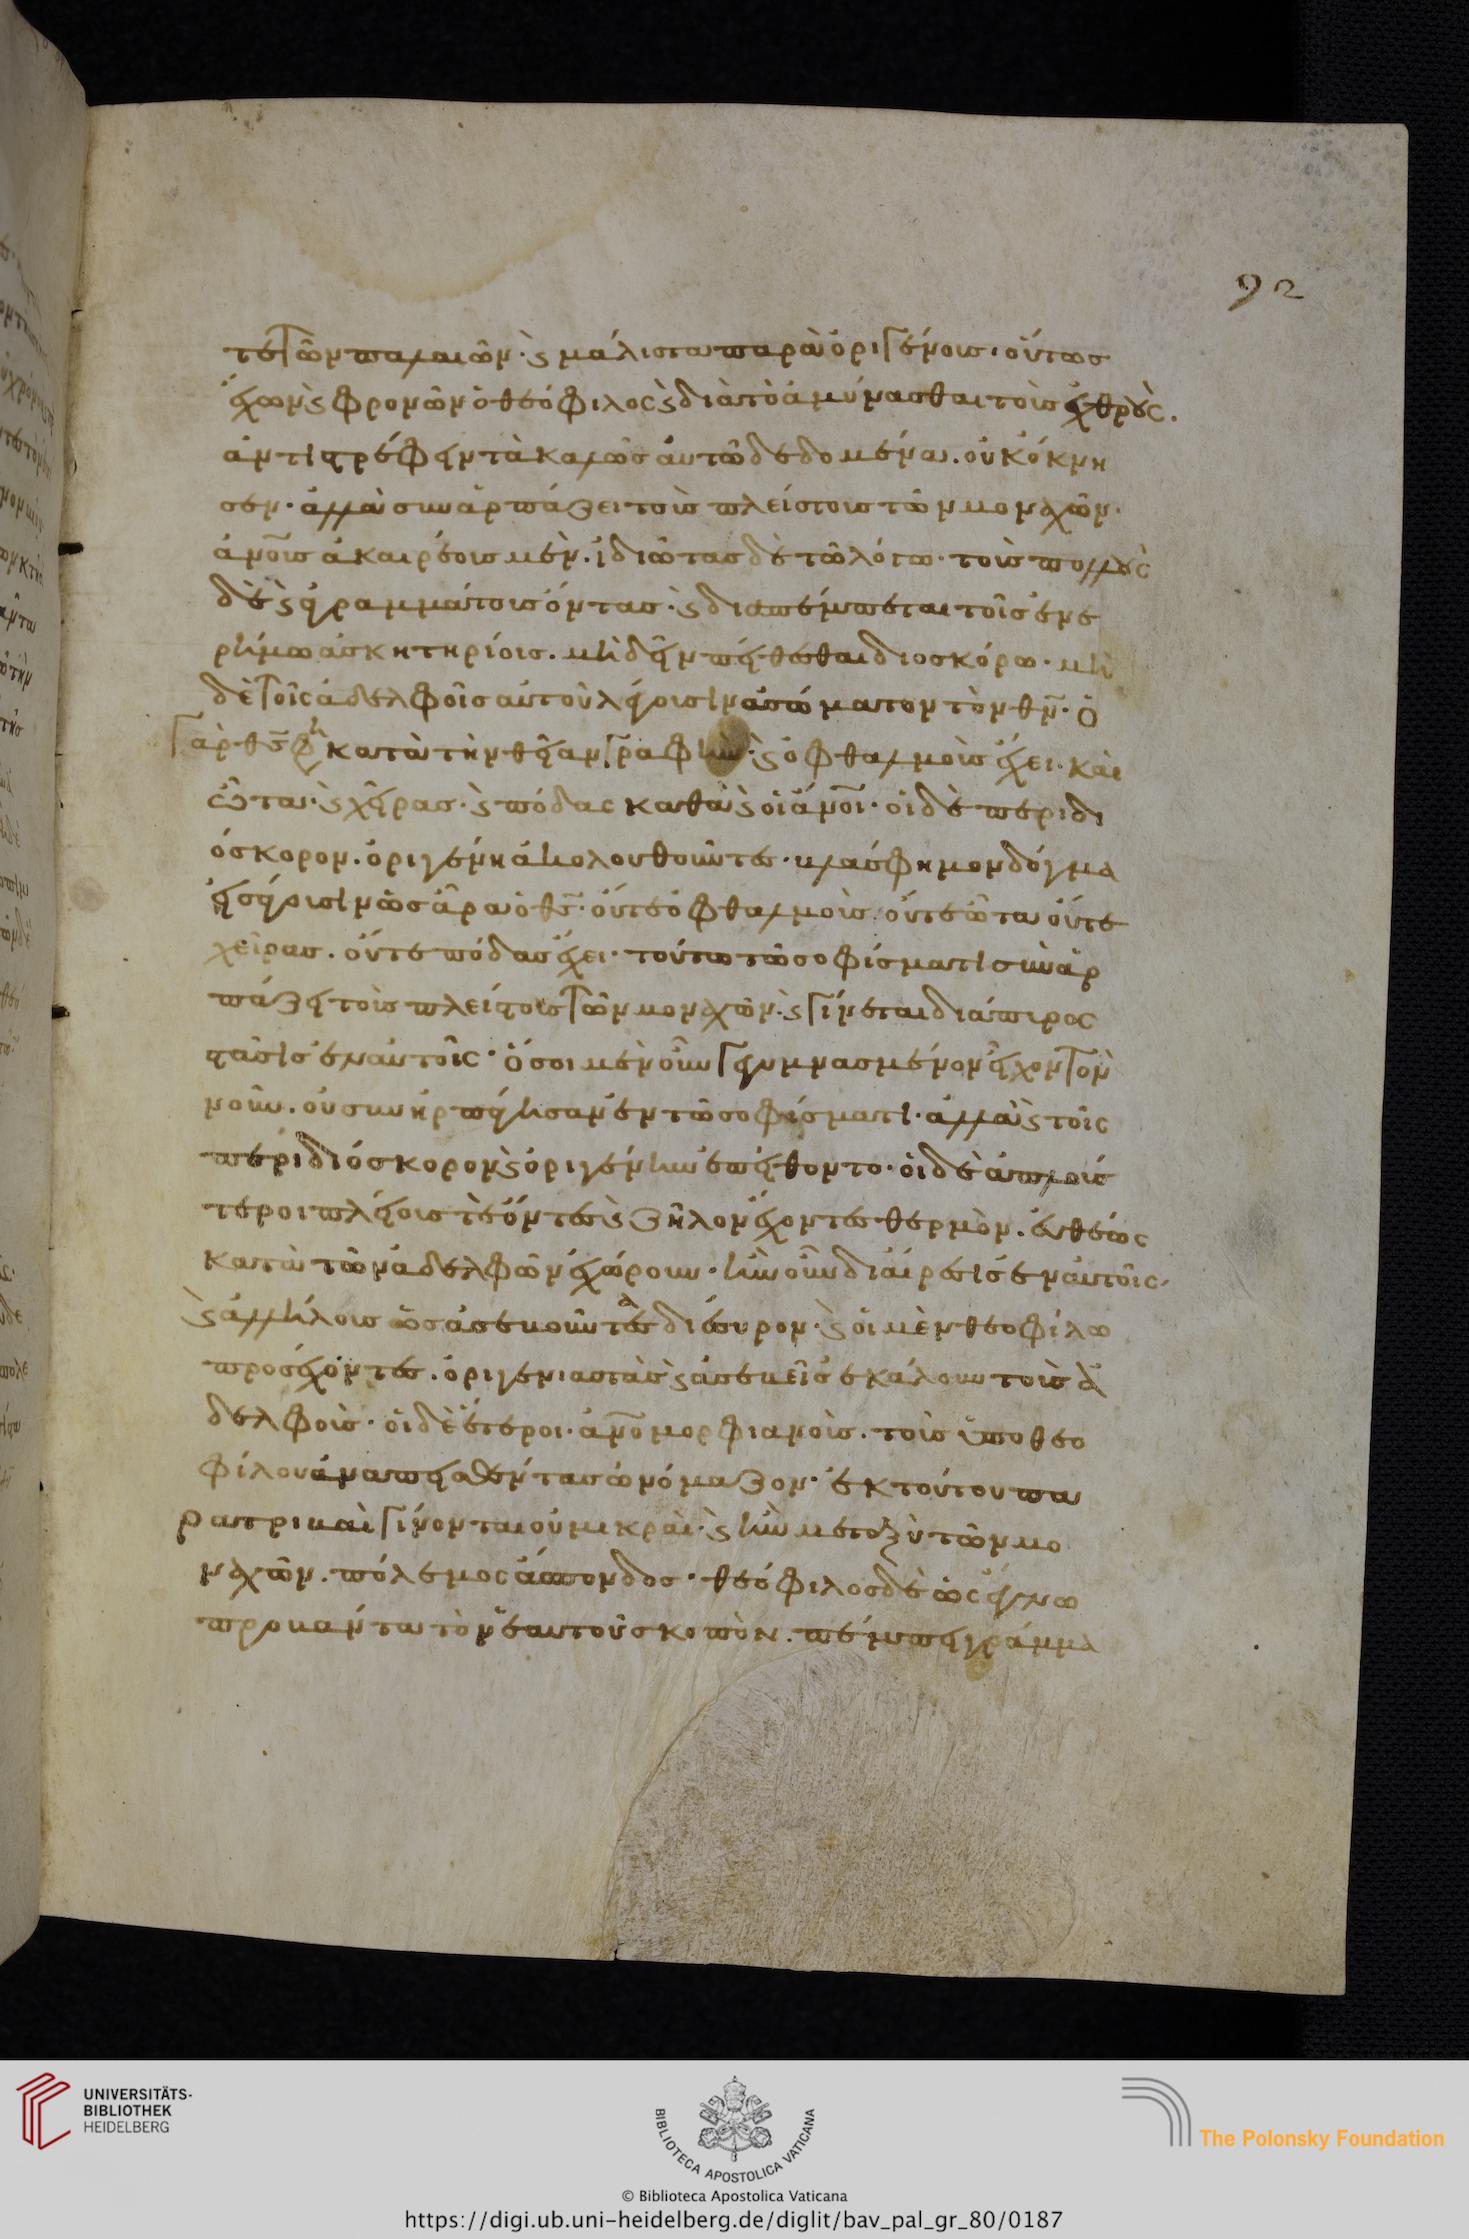 92
τὲ τῶν παλαιῶν· ϗ μάλιστα παρὰ ὀριγένους· οὕτως
ἔχων ϗ φρονῶν ὁ θεόφιλος ϗ διὰ τὸ ἀμύνασθαι τοὺς ἐχθρούς.
ἀντιστρέφειν τὰ καλῶς αὐτῶ δεδομένα. οὐκ ὄκνη
σεν· ἀλλὰ συναρπάζει τοὺς πλείστους τῶν μοναχῶν·
ἀν̅ους ἀκαιρέους μὲν. ἰδιώτας δὲ τῶ λόγω· τοὺς πολλοὺς
δὲ ϗ ἀγραμμάτους ὄντας· ϗ διαπέμπεται τοῖς ἐν ἐ
ρήμω ἀσκητηρίοις. μὴ δεῖν πείθεσθαι διοσκόρω· μὴ
δὲ τοῖς ἀδελφοῖς αὐτοῦ λέγουσιν ἀσώματον τὸν θν̅· ὁ
γὰρ θς̅ φη κατὰ τὴν θείαν γραφὴν· ϗ ὀφθαλμοὺς ἔχει· καὶ
ὦτα· ϗ χεῖρας· ϗ πόδας καθὰ ϗ οἱ ἄν̅οι· οἱ δὲ περὶ δι
όσκορον. ὀριγένη ἀκολουθοῦντες· βλάσφημον δόγμα
εἰσφέρουσιν ὡς ἄρα ὁ θς̅· οὔτε ὀφθαλμοὺς οὔτε ὦτα οὔτε
χεῖρας. οὔτε πόδας ἔχει· τούτω τῶ σοφίσματι συναρ
πάζει τοὺς πλείστους τῶν μοναχῶν· ϗ γίνεται διάπυρος
στάσις ἐν αὐτοῖς· Ὅσοι μὲν οὖν γεγυμνασμένον εἶχον τὸν
νοῦν. οὐ συνηρπάγησαν ἐν τῶ σοφίσματι· ἀλλὰ ϗ τοῖς
περὶ διόσκορον ϗ ὀριγένην ἐπείθοντο· οἱ δὲ ἁπλούς
τεροι πλείους τὲ ὄντες ϗ ζῆλον ἔχοντες θερμὸν. εὐθέως
κατὰ τῶν ἀδελφῶν ἐχώρουν· ἦν οὖν διαίρεσις ἐν αὐτοῖς·
ϗ ἀλλήλους ὡς ἀσεβοῦντας διέσυρον· ϗ οἱ μὲν θεοφίλω
προσέχοντες. ὀριγενιαστὰς ϗ ἀσεβεῖς ἐκάλουν τοὺς ἀ
δελφοὺς· οἱ δὲ ἕτεροι· ἀν̅ομορφιανοὺς. τοὺς ὑπὸ θεο
φίλου ἀναπεισθέντας ὠνόμαζον· ἐκ τούτου πα
ρατριβαὶ γίνονται οὐ μικραὶ· ϗ ἦν μεταξὺ τῶν μο
ναχῶν. πόλεμος ἄσπονδος· θεόφιλος δὲ ὡς ἔγνω
προβάντα τὸν ἑαυτοῦ σκοπὸν. πέμπει γράμμα
UNIVERSITÄTS-
BIBLIOTHEK
HEIDELBERG
BIBLIOTECA APOSTOLICA VATICANA
The Polonsky Foundation
© Biblioteca Apostolica Vaticana
https://digi.ub.uni-heidelberg.de/diglit/bav_pal_gr_80/0187